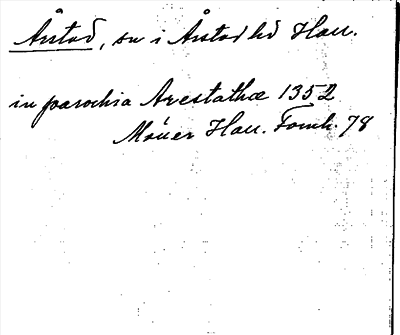 Årstad, sn i Årstad hd Hall.
in parochia Arestathæ 1352
Móller Hall. Fornh. 78